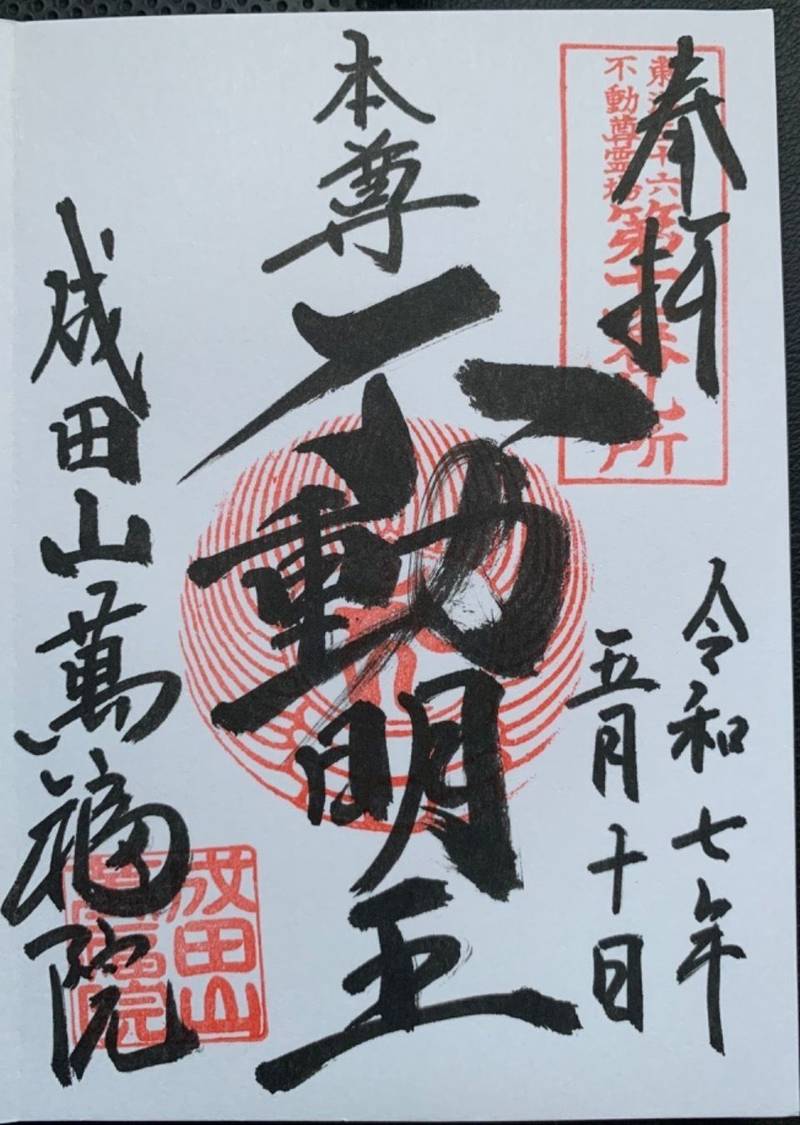 奉拝
不動尊霊場
令和七年
五月十日
本尊
不動明王
成田山萬福院
成田山
萬福院